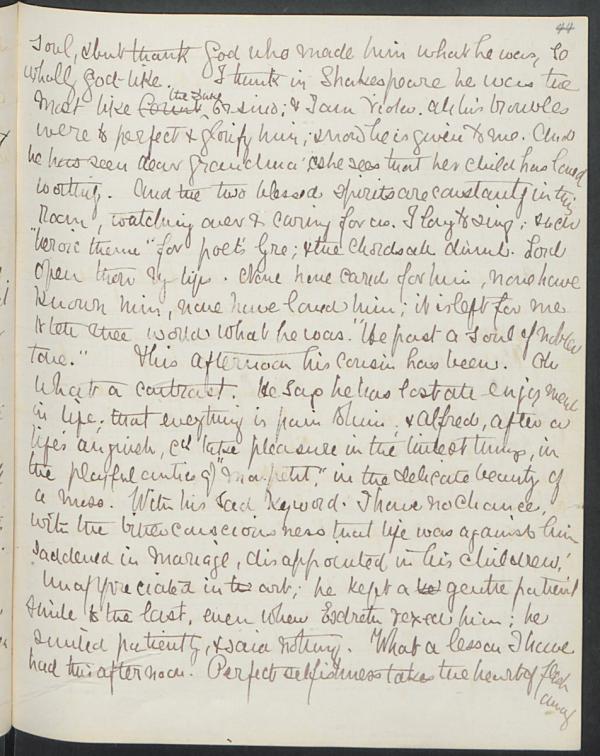 44
soul, & but thank God who made him what he was, so
wholly god-like. I think in Shakespeare he was the
most like the Duke Orsino; & I am Viola. All his troubles
were to perfect & glorify him; & now he is given to me. And
he has seen dear grandma & she sees that her child has loved
worthily. And the two blessed spirits are constantly in this
room, watching over & caring for us. I long to sing; & such
"heroic theme" for poet's lyre; & the chords all dumb. Lord
open thou my lips. None have cared for him, none have
known him, none have loved him; it is left for me
to tell the world what he was. "He past a soul of nobler
tone." This afternoon his cousin has been. Oh
what a contrast. He says he has lost all enjoyment
in life; that everything is pain to him, & Alfred, after a
life's anguish, cd take pleasure in the tiniest things, in
the playful antics of "mon petit," in the delicate beauty of
a moss. With his sad keyword. I have no chance,
with the bitter consciousness that life was against him
saddened in marriage, disappointed in his children,
unappreciated in his art; he kept a gentle patient
smile to the last, even when vexed him; he
smiled patiently, & said nothing. What a lesson I have
had this afternoon. Perfect selfishness takes the heart of flesh
away